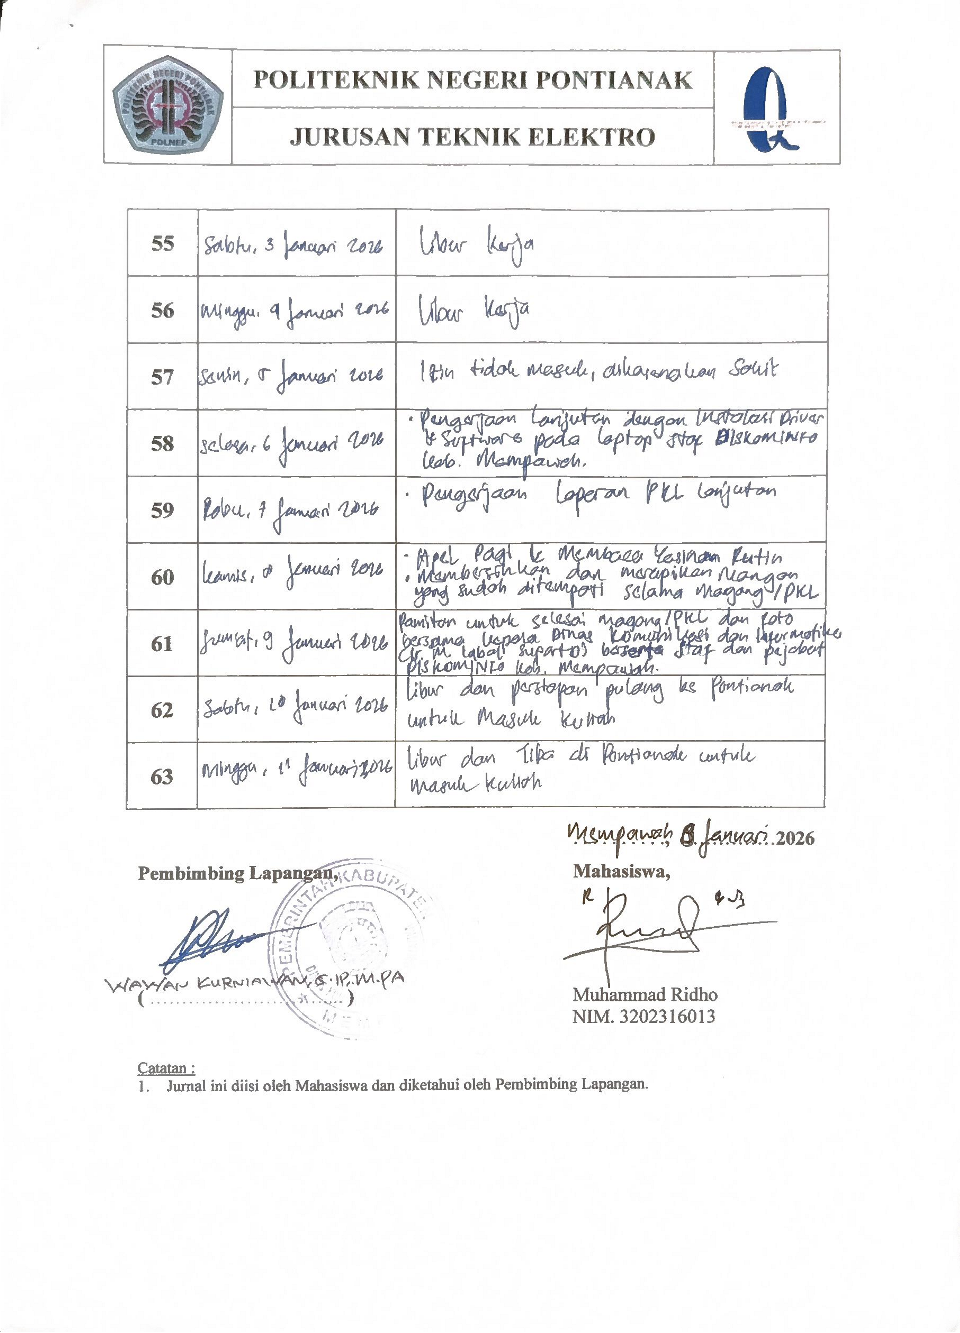 POLITEKNIK NEGERI PONTIANAK
POLNEP
POLITEKNIK NEGERI PONTIANAK
JURUSAN TEKNIK ELEKTRO
55 Sabtu, 3 Januari 2026 Libur Kerja
56 Minggu, 4 Januari 2026 Libur Kerja
57 Senin, 5 Januari 2026 Izin tidak masuk, dikarenakan Sakit
58 Selasa, 6 Januari 2026 • Pengerjaan Lanjutan dengan Instalasi Driver
& Software pada laptop Staf DISKOMINFO
Kab. Mempawah.
59 Rabu, 7 Januari 2026 • Pengerjaan Laporan PKL Lanjutan
60 Kamis, 8 Januari 2026 • Apel Pagi & Membaca Yasinan Rutin
• Membersihkan dan merapikan Ruangan
yang sudah ditempati selama Magang/PKL
61 Jumat, 9 Januari 2026 Pamitan untuk selesai magang/PKL dan foto
bersama Kepala Dinas Komunikasi dan Informatika
(Ir. M. Iqbal Suparto) beserta Staf dan pejabat
DISKOMINFO Kab. Mempawah.
62 Sabtu, 10 Januari 2026 Libur dan persiapan pulang ke Pontianak
untuk Masuk Kuliah
63 Minggu, 11 Januari 2026 Libur dan Tiba di Pontianak untuk
masuk Kuliah
Mempawah, 8 Januari 2026
Pembimbing Lapangan,
Mahasiswa,
PEMERINTAH KABUPATE
WAWAN KURNIAWAN, S.IP., M.PA
(........................................)
Muhammad Ridho
NIM. 3202316013
Catatan :
1. Jurnal ini diisi oleh Mahasiswa dan diketahui oleh Pembimbing Lapangan.